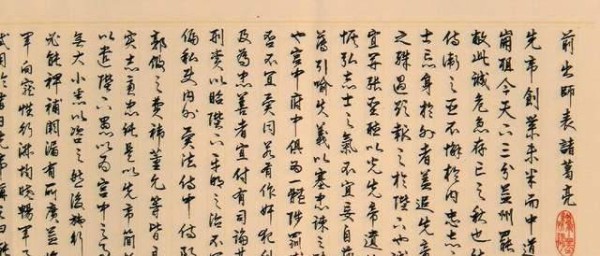 前出師表諸葛亮
先帝創業未半而中道
崩殂今天下三分益州罷
敝此誠危急存亡之秋也
侍衛之臣不懈於內忠志
士忘身於外者蓋追先帝
之殊遇欲報之於陛下也誠
宜開張聖聽以光先帝遺
恢弘志士之氣不宜妄自
薄引喻失義以塞忠諫之
也宮中府中俱為一體陟罰
否不宜異同若有作奸犯
及為忠善者宜付有司論其
刑賞以昭陛下平明之治不
偏私使內外異法侍中侍郎
郭攸之費禕董允等此皆
實志慮忠純是以先帝簡
以遺陛下愚以為宮中之
無大小悉以咨之然後施行
必能裨補闕漏有所廣益
軍向寵性行淑均曉暢軍
試用於昔日先帝稱之曰能